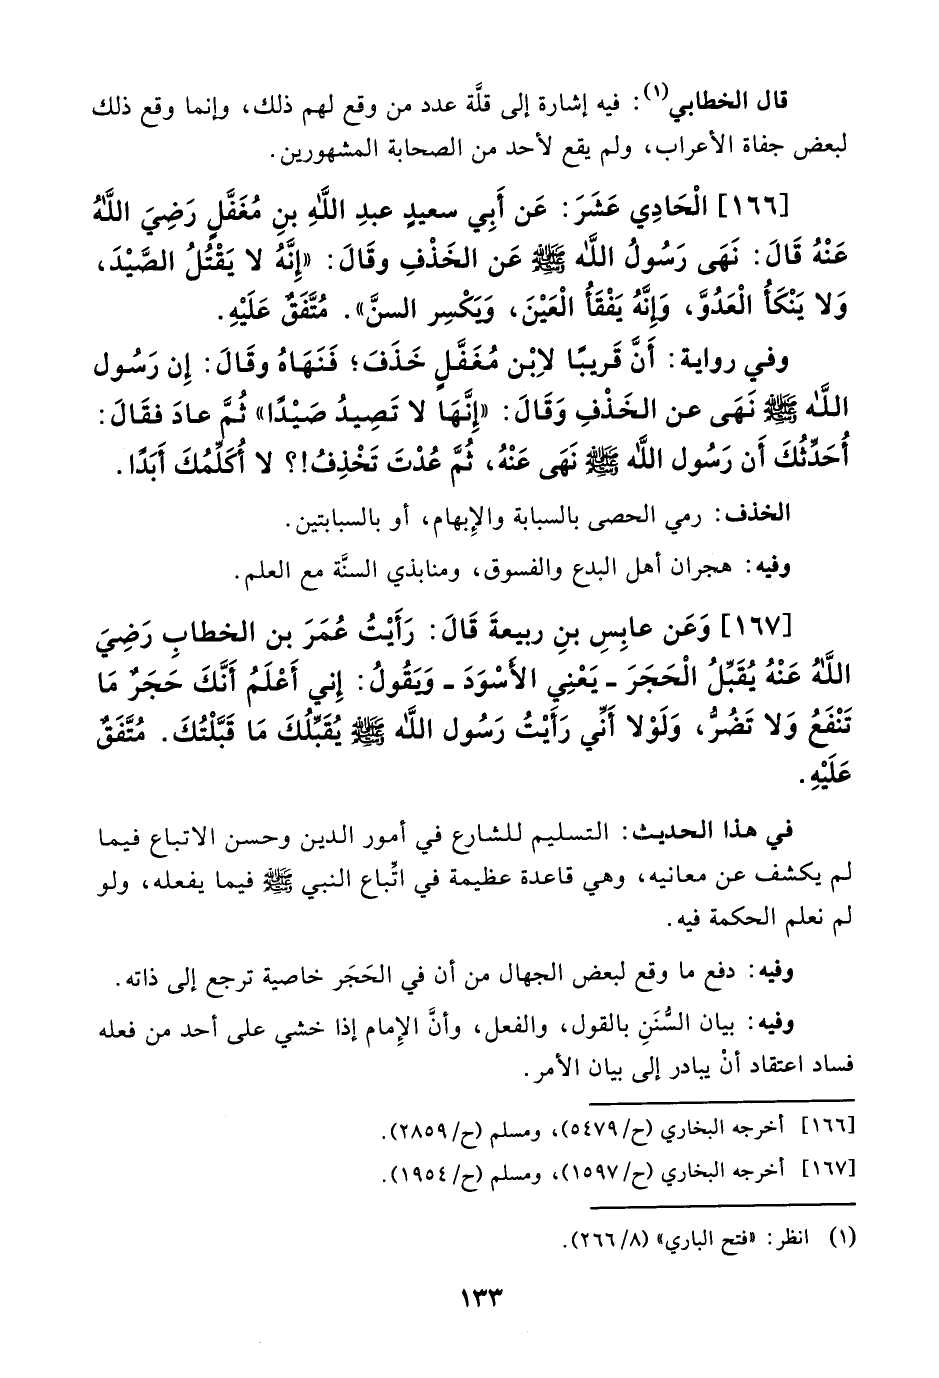 قال الخطابي(١): فيه إشارة إلى قلَّة عدد من وقع لهم ذلك، وإنما وقع ذلك
لبعض جفاة الأعراب، ولم يقع لأحد من الصحابة المشهورين.
[١٦٦] الْحَادِي عَشَرَ: عَن أَبِي سعيدٍ عبدِ اللَّهِ بنِ مُغَفَّلٍ رَضِيَ اللَّهُ
عَنْهُ قَالَ: نَهَى رَسُولُ اللَّه ﷺ عَن الخَذْفِ وقَالَ: «إِنَّهُ لا يَقْتُلُ الصَّيْدَ،
وَلا يَنْكَأُ الْعَدُوَّ، وَإِنَّهُ يَفْقَأُ الْعَيْنَ، وَيَكْسِر السنَّ». مُتَّفَقٌ عَلَيْهِ.
وفي رواية: أَنَّ قَرِيبًا لاِبْنِ مُغَفَّلٍ خَذَفَ؛ فَنَهَاهُ وقَالَ: إِن رَسُول
اللَّه ﷺ نَهَى عن الخَذْفِ وَقَالَ: «إِنَّهَا لا تَصِيدُ صَيْدًا» ثُمَّ عادَ فقَالَ:
أُحَدِّثُكَ أَن رَسُول اللَّه ﷺ نَهَى عَنْهُ، ثُمَّ عُدْتَ تَخْذِفُ!؟ لا أُكَلِّمُكَ أَبَدًا.
الخذف: رمي الحصى بالسبابة والإِبهام، أو بالسبابتين.
وفيه: هجران أهل البدع والفسوق، ومنابذي السنَّة مع العلم.
[١٦٧] وَعَن عابِسِ بنِ ربيعةَ قَالَ: رَأَيْتُ عُمَرَ بن الخطابِ رَضِيَ
اللَّهُ عَنْهُ يُقَبِّلُ الْحَجَرَ ـ يَعْنِي الأَسْوَدَ ـ وَيَقُولُ: إِني أَعْلَمُ أَنَّكَ حَجَرٌ مَا
تَنْفَعُ وَلا تَضُرُّ، وَلَوْلا أَنِّي رَأَيْتُ رَسُول اللَّه ﷺ يُقَبِّلُكَ مَا قَبَّلْتُكَ. مُتَّفَقٌ
عَلَيْهِ.
في هذا الحديث: التسليم للشارع في أمور الدين وحسن الاتباع فيما
لم يكشف عن معانيه، وهي قاعدة عظيمة في اتِّباع النبي ﷺ فيما يفعله، ولو
لم نعلم الحكمة فيه.
وفيه: دفع ما وقع لبعض الجهال من أن في الحَجَر خاصية ترجع إلى ذاته.
وفيه: بيان السُّنَنِ بالقول، والفعل، وأنَّ الإِمام إذا خشي على أحد من فعله
فساد اعتقاد أنْ يبادر إلى بيان الأمر.
[١٦٦] أخرجه البخاري (ح/٥٤٧٩)، ومسلم (ح/٢٨٥٩).
[١٦٧] أخرجه البخاري (ح/١٥٩٧)، ومسلم (ح/١٩٥٤).
(١) انظر: «فتح الباري» (٢٦٦/٨).
١٣٣